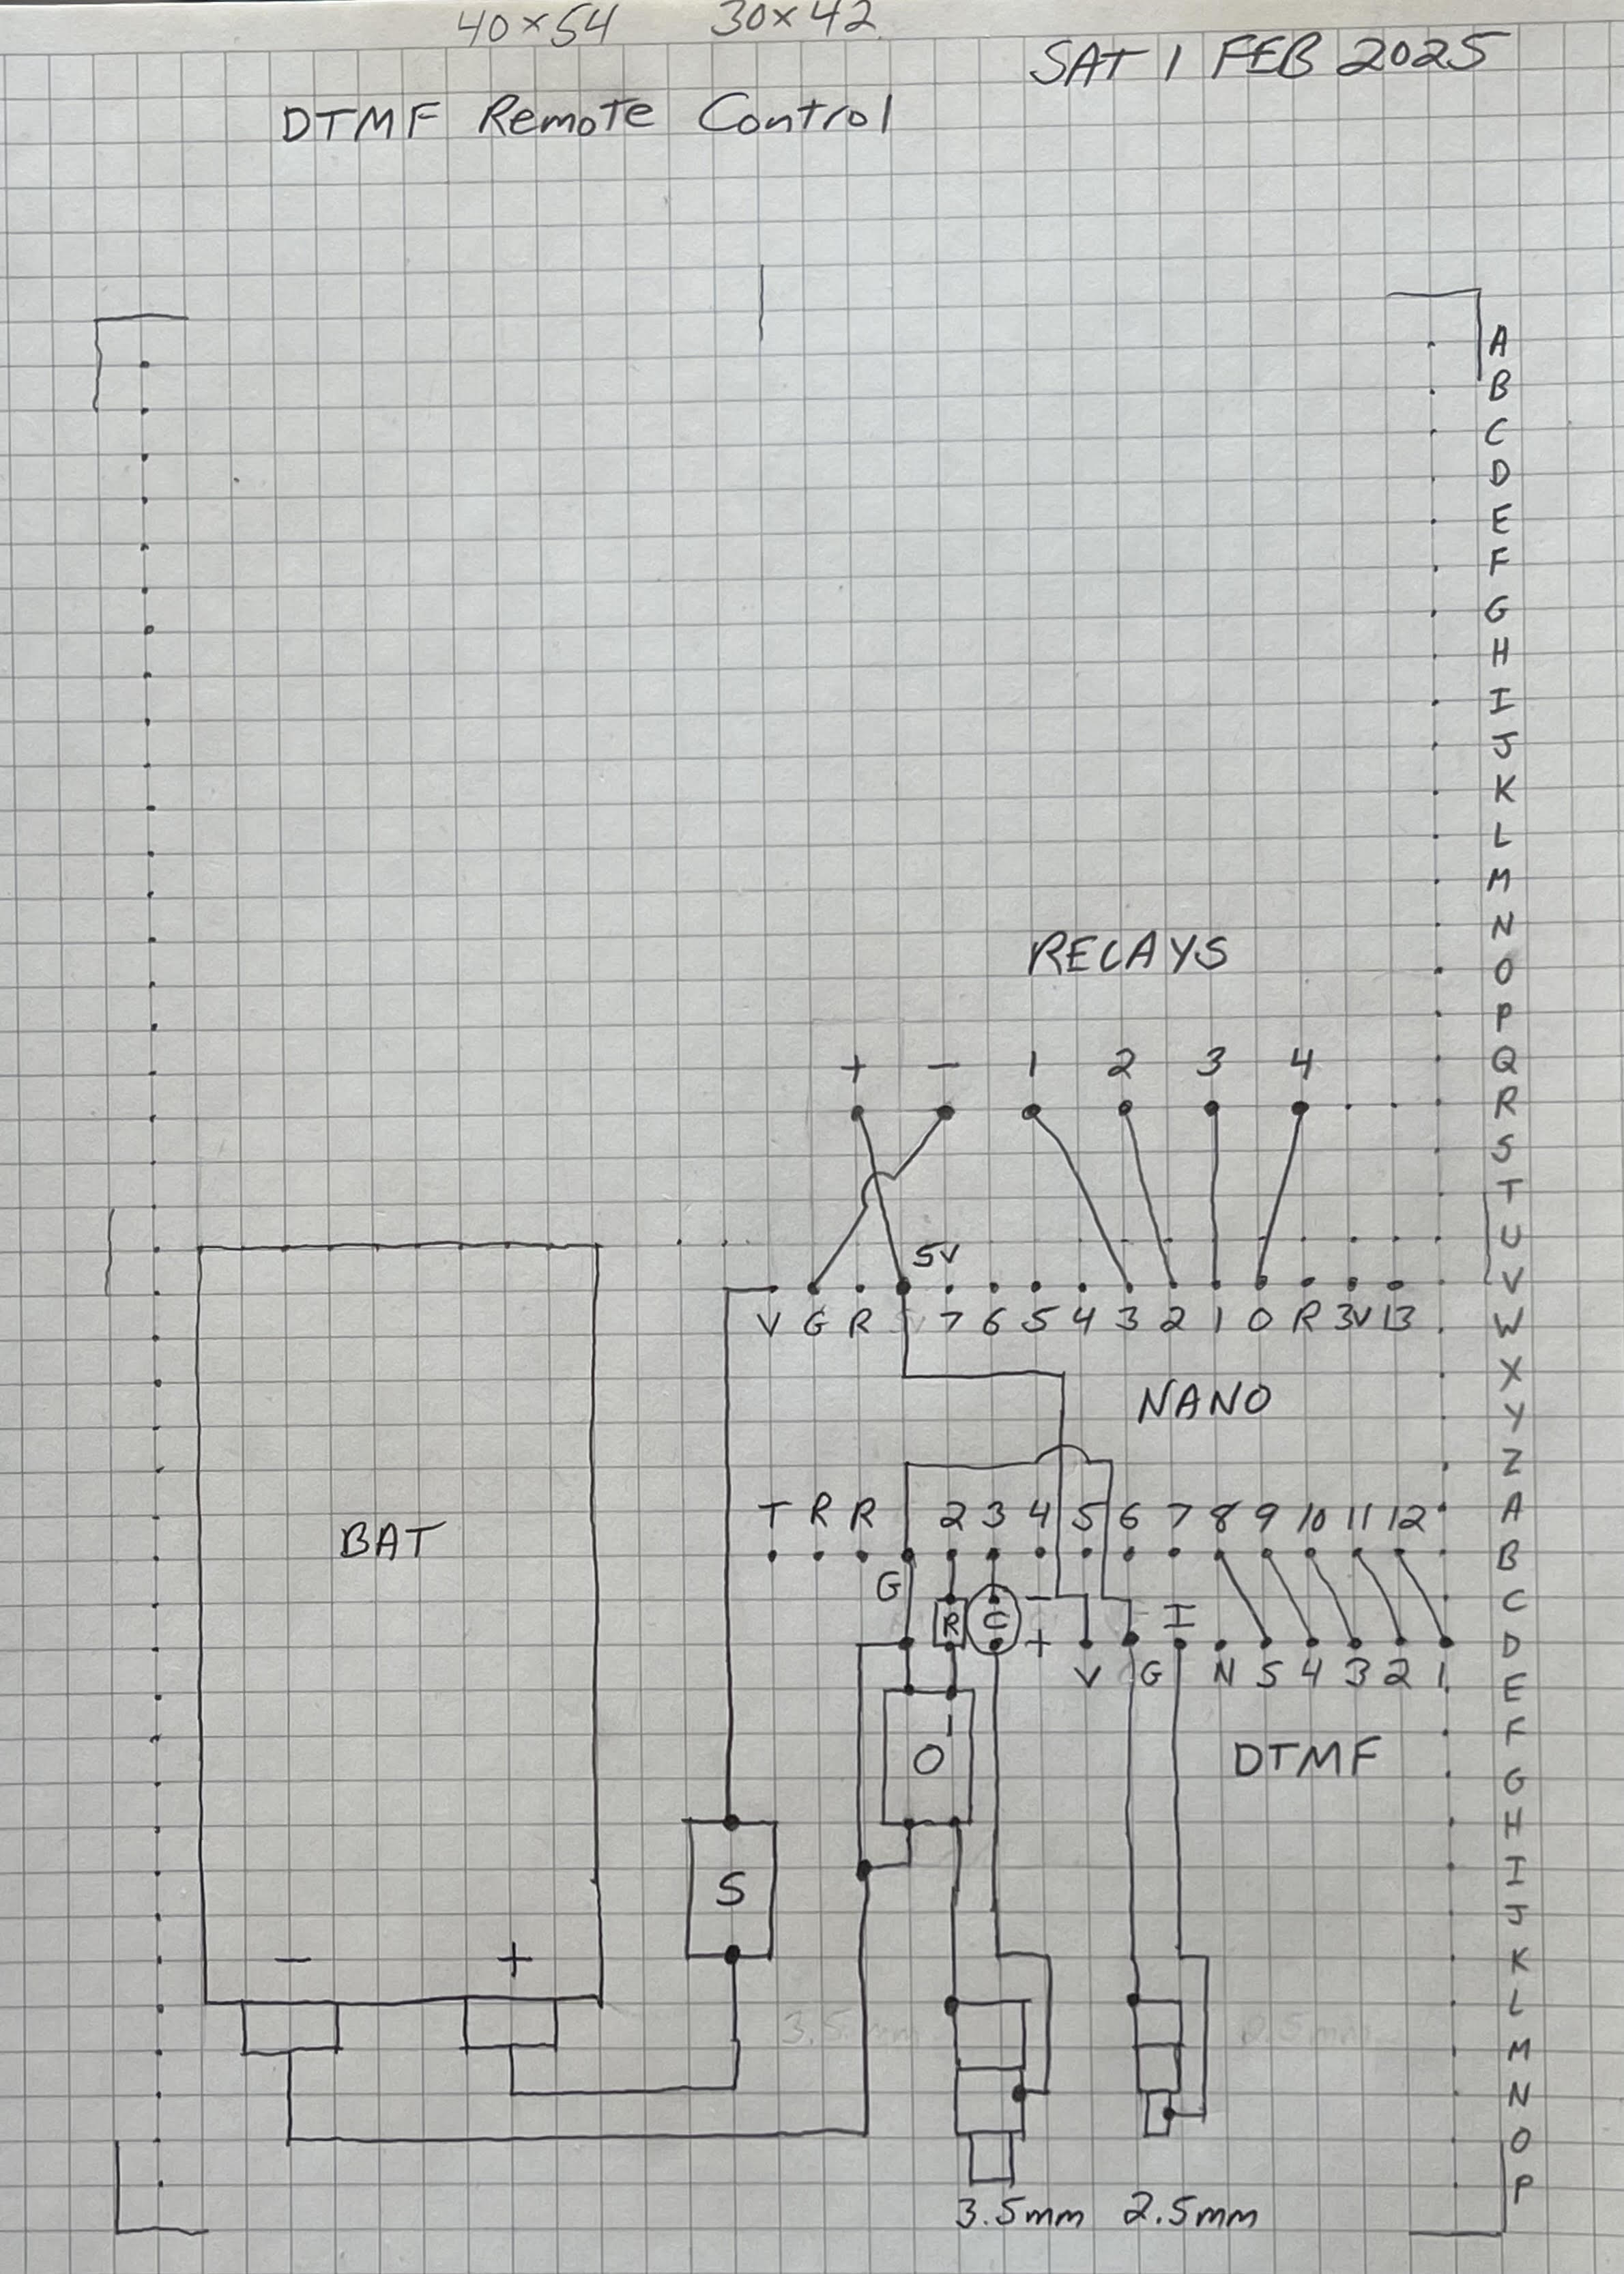 40×54 30×42
SAT 1 FEB 2025
DTMF Remote Control
A
B
C
D
E
F
G
H
I
J
K
L
M
N
RELAYS
O
P
+ − 1 2 3 4 Q
R
S
T
5V U
V
V G R 7 6 5 4 3 2 1 0 R 3V 13 W
X
NANO
Y
Z
T R R 2 3 4 5 6 7 8 9 10 11 12 A
BAT
B
G − C
R C I
+ D
V G N 5 4 3 2 1 E
F
O DTMF
G
H
I
S
J
− + K
3.5mm 2.5mm L
M
N
O
P
3.5mm 2.5mm